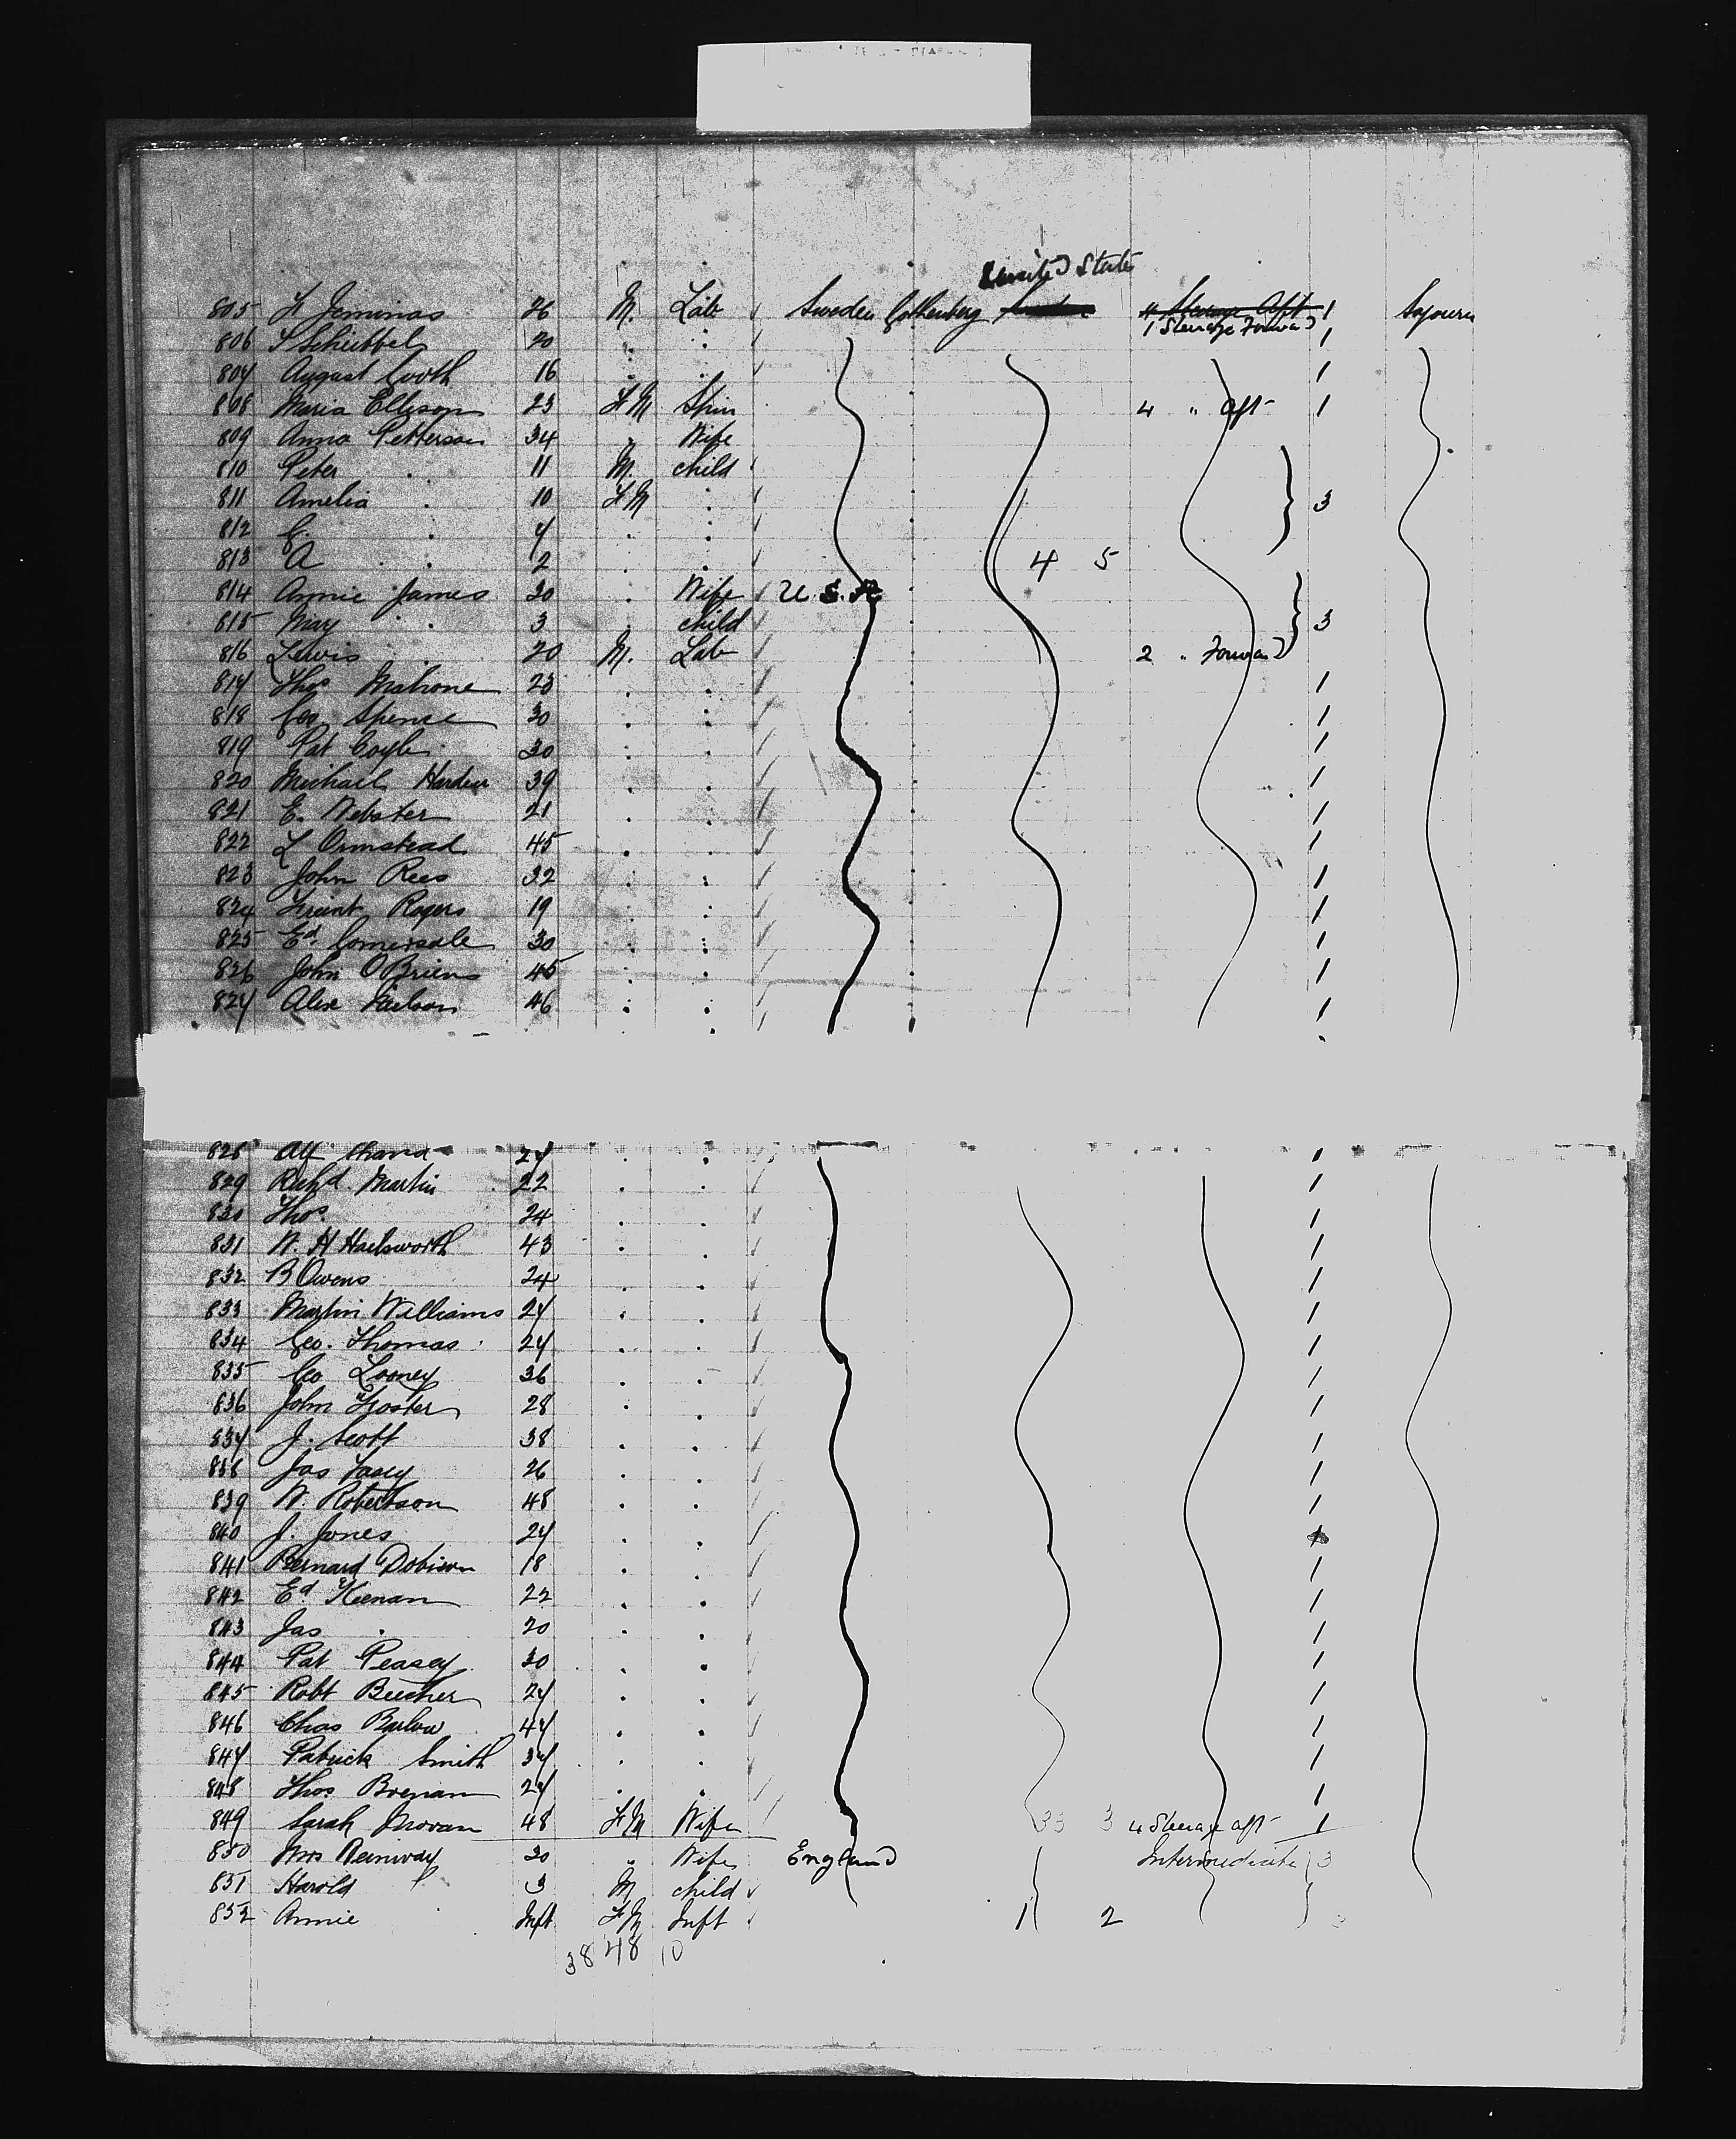 United States
805 F Jeminas 26 M. Lab Sweden Gothenberg 4 Steerage Aft 1 Sojourn
1 Steerage Forward
806 20 1
807 August Cooth 16 1
808 Maria Ellison 23 FM Spin 4 " aft 1
809 Anna Petterson 34 " Wife
810 Peter . 11 M. child
811 Amelia . 10 FM . 3
812 G. . 7 . .
813 A . . 2 . . 4 5
814 Annie James 20 . Wife U.S.A
815 May . . 3 . child 3
816 Lewis . 20 M. Lab 2 " Forward
817 Thos Mahone 23 . . 1
818 Geo Spence 30 . . 1
819 Pat Coyle 30 . . 1
820 Michael Harden 39 . . 1
821 E. Webster 21 . . 1
822 L Ormstead 45 . . 1
823 John Rees 32 . . 1
824 Rogers 19 . . 1
825 Ed. Comersale 30 . . 1
826 John OBriens 45 . . 1
827 Alex Neilson 46 . . 1
828 Alf 27 . . 1
829 Richd Martin 22 . . 1
830 Thos. 24 . . 1
831 W. H Hailsworth 43 . . 1
832 B Owens 24 . . 1
833 Martin Williams 27 . . 1
834 Geo. Thomas 27 . . 1
835 Geo Looney 36 . . 1
836 John Froster 28 . . 1
837 J. Scott 38 . . 1
838 Jas 26 . . 1
839 W. Robertson 48 . . 1
840 J. Jones 27 . . 1
841 Bernard Dobison 18 . . 1
842 Ed Keenan 22 . . 1
843 Jas . 20 . . 1
844 Pat Peasey 30 . . 1
845 Robt Beecher 27 . . 1
846 Chas Barlow 47 . . 1
847 Patrick Smith 37 . . 1
848 Thos Brenan 27 . . 1
849 Sarah Morean 48 FM Wife 33 3 4 Steerage aft 1
850 Mrs Reinway 30 " Wife England Intermediate 3
851 Harold 3 M child
852 Annie Inft FM Inft 1 2 3
38 48 10